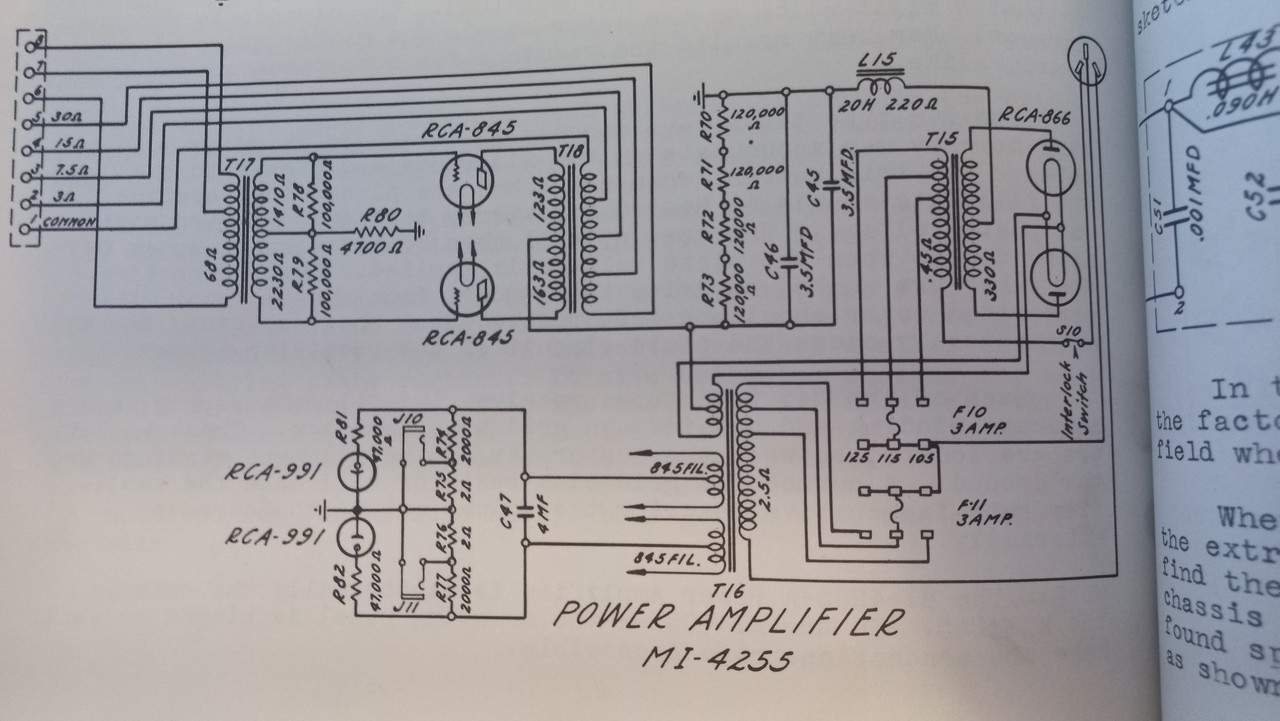 8
7
6
5 30Ω
4 15Ω
3 7.5Ω
2 3Ω
1 COMMON
T17
68Ω
1410Ω
2230Ω
R78
100,000Ω
R79
100,000Ω
R80
4700Ω
RCA-845
RCA-845
T18
123Ω
163Ω
R70
120,000
Ω
R71
120,000
Ω
R72
120,000
Ω
R73
120,000
Ω
C46
3.5 MFD
C45
3.5 MFD.
L15
20H 220Ω
T15
.45Ω
330Ω
RCA-866
S10
Interlock
Switch
F10
3 AMP.
125 115 105
F-11
3 AMP.
RCA-991
RCA-991
R81
47,000
Ω
R82
47,000Ω
J10
J11
R74
2000Ω
R75
2Ω
R76
2Ω
R77
2000Ω
C47
4 MF
845 FIL.
845 FIL.
2.5Ω
T16
POWER AMPLIFIER
MI-4255
L43
.090H
1
C51
.001MFD
C52
2
In
the
field
Whe
the extr
find the
chassis
found sp
as shown